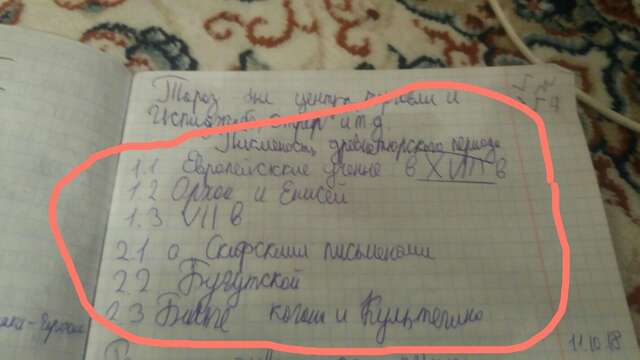 Тараз был центр торговли и
Испиджаб, Отрар и т.д.
Письменость древнетюрского периода
1.1 Европейские ученые в XVIII в
1.2 Орхон и Енисей
1.3 VII в
2.1 а Скифскими письменами
2.2 Бугутской
2.3 Бильге каган и Культегина
11.10.18